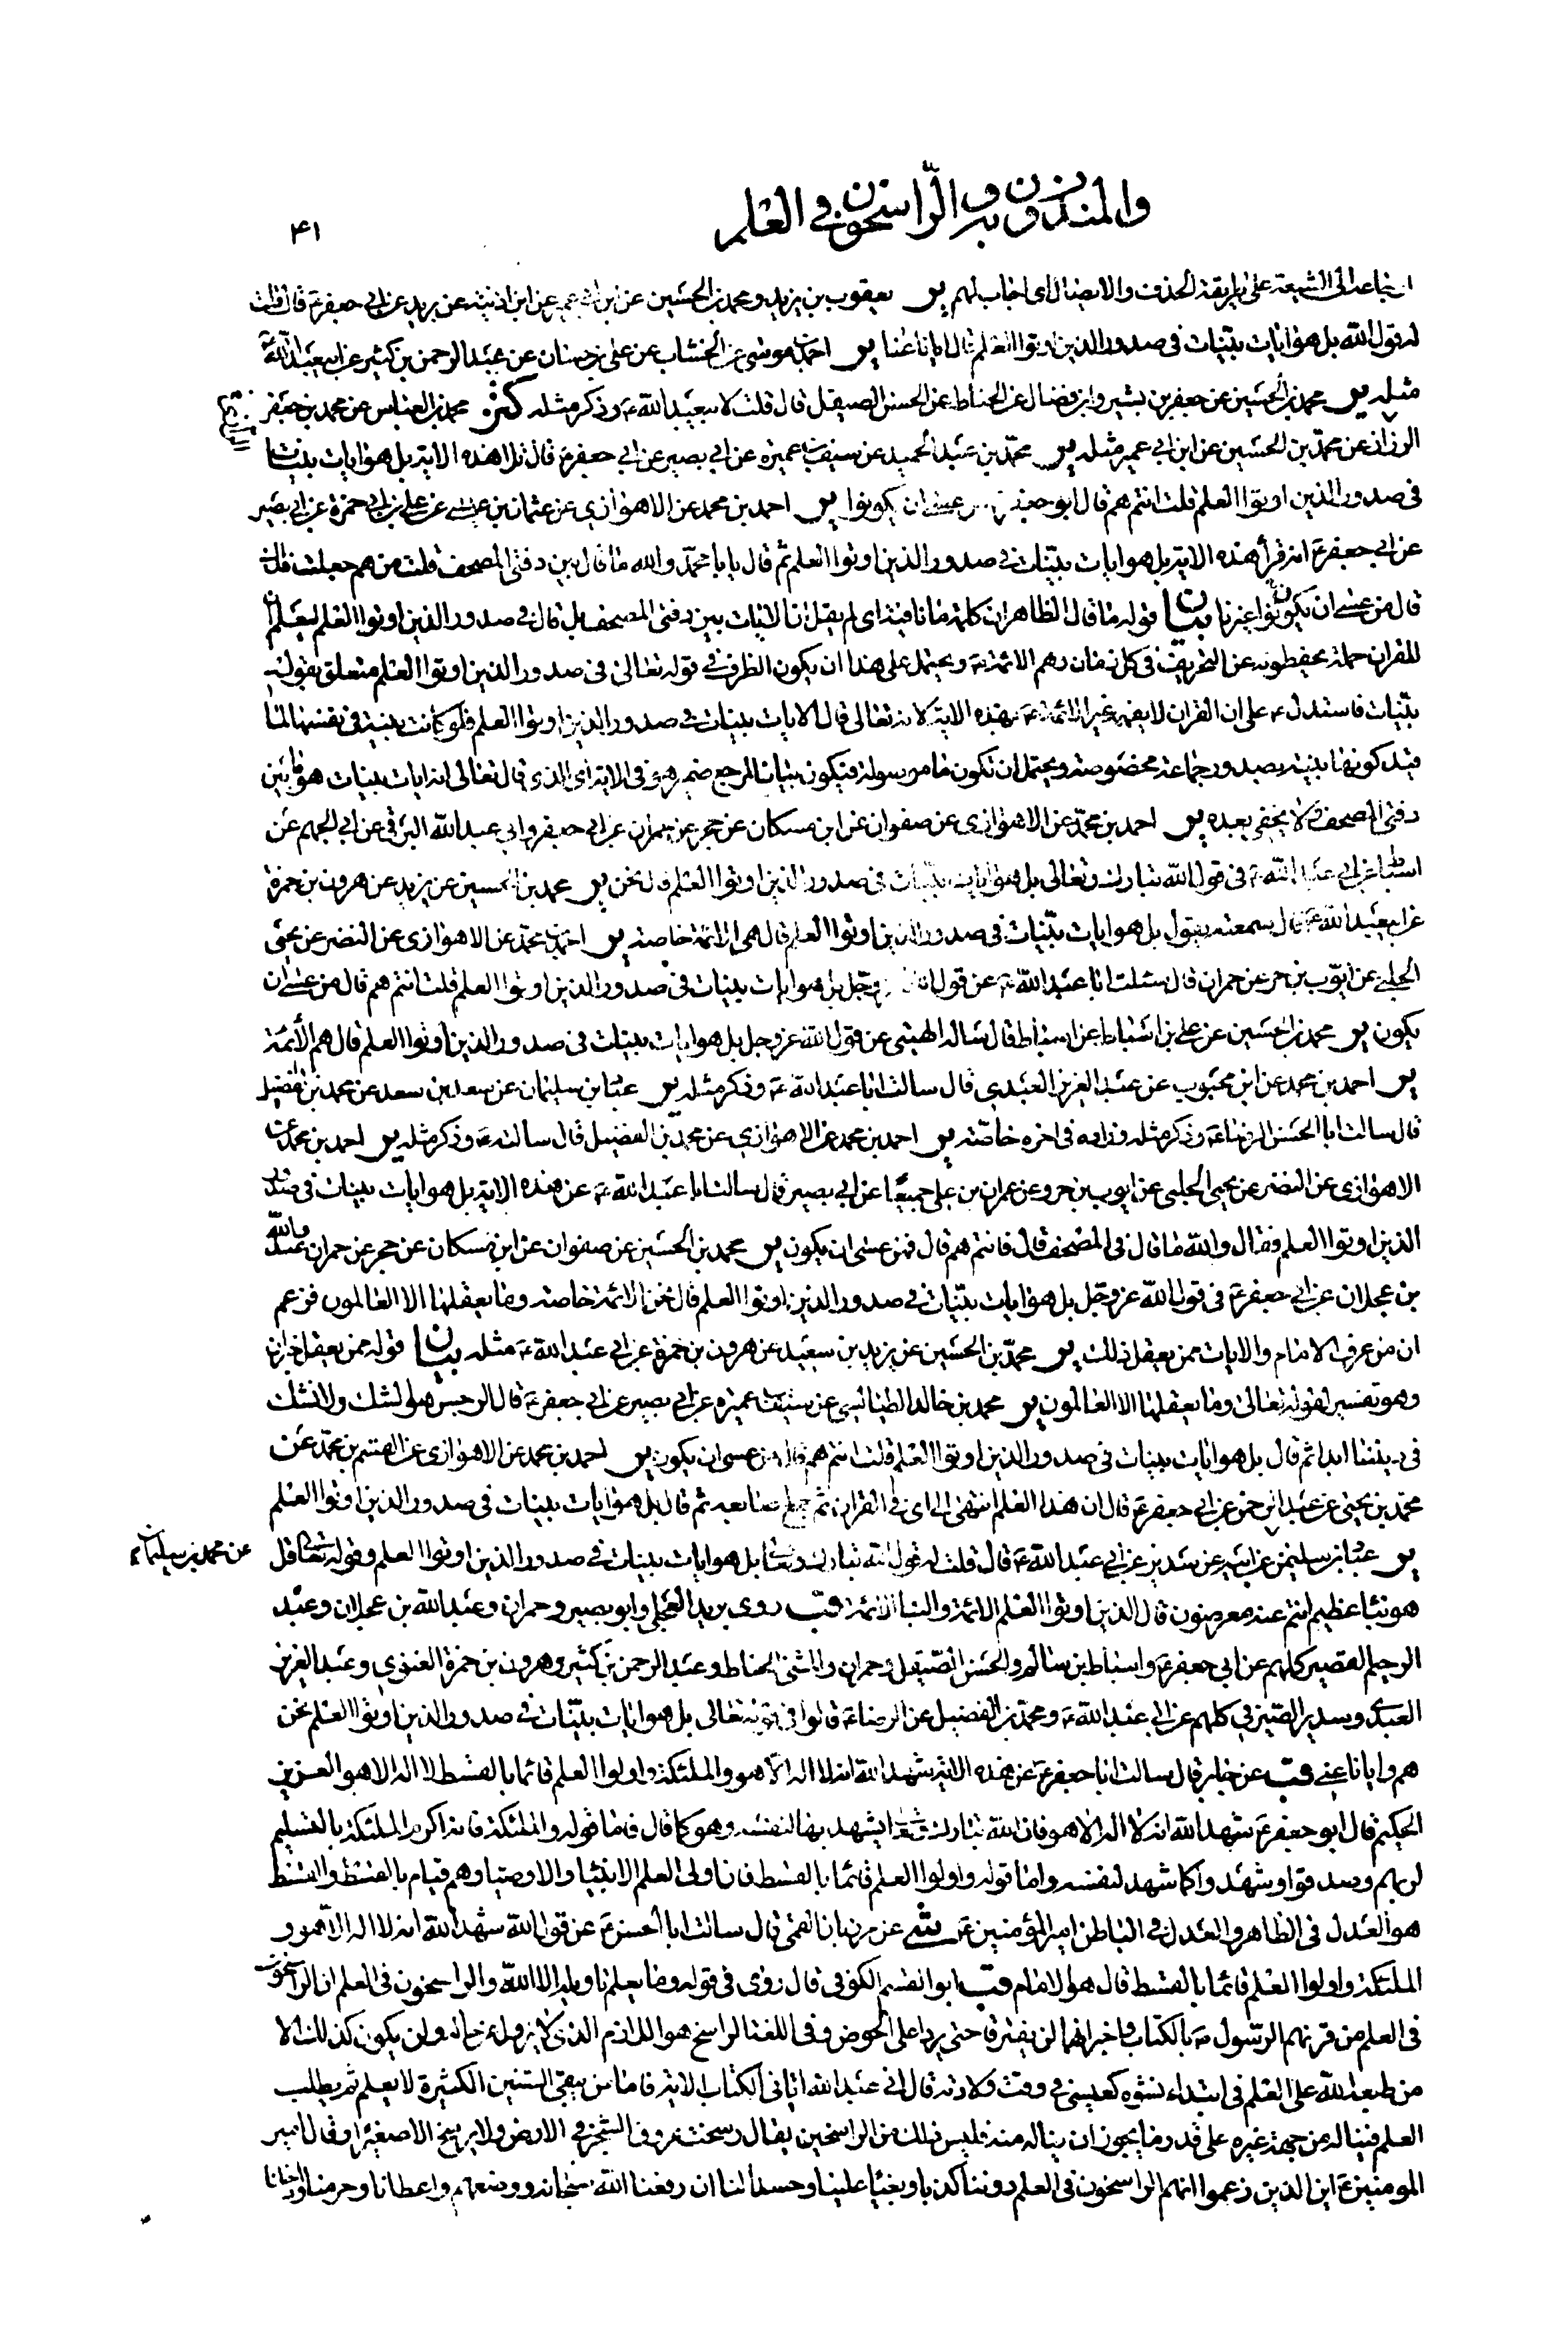 والمنذرون والراسخون في العلم
۴۱
على طريقة الحذف والايصال اى اجاب لهم ير يعقوب بن يزيد ومحمد بن الحسين عن ابن ابي عمير عن ابن اذينة عن بريد عن ابي جعفر ع قال قلت
له قول الله بل هو ايات بينات في صدور الذين اوتوا العلم قال ايانا عنا ير احمد بن موسى عن الخشاب عن علي بن حسان عن عبد الرحمن بن كثير عن ابيعبد الله ع
مثله ير محمد بن الحسين عن جعفر بن بشير وابن فضال عن الحناط عن الحسن الصيقل قال قلت لابيعبد الله ع وذكر مثله كنز محمد بن العباس عن محمد بن جعفر
الرزاز عن محمد بن الحسين عن ابن ابي عمير مثله ير محمد بن عبد الحميد عن سيف بن عميرة عن ابي بصير عن ابي جعفر ع قال تلا هذه الاية بل هو ايات بينات
في صدور الذين اوتوا العلم قلت انتم هم قال ابو جعفر من عسى ان يكونوا ير احمد بن محمد عن الاهوازي عن عثمان بن عيسى عن علي بن ابي حمزة عن ابي بصير
عن ابي جعفر ع انه قرأ هذه الاية بل هو ايات بينات في صدور الذين اوتوا العلم ثم قال يا با محمد والله ما قال بين دفتي المصحف قلت من هم جعلت فداك
قال من عسى ان يكونوا غيرنا بيان قوله ما قال الظاهر ان كلمة ما نافية اى لم يقل ان الايات بين دفتي المصحف بل قال في صدور الذين اوتوا العلم ليعلم ان
للقران حملة يحفظونه عن التحريف في كل زمان وهم الائمة ع ويحتمل على هذا ان يكون الظرف في قوله تعالى في صدور الذين اوتوا العلم متعلق بقوله
بينات فاستدل ع على ان القران لا يفهمه غير الائمة ع بهذه الاية لانه تعالى قال الايات بينات في صدور الذين اوتوا العلم فلو كانت بينة في نفسها لما
قيد كونها بينة بصدور جماعة مخصوصة ويحتمل ان تكون ما موصولة فيكون بيانا لمرجع ضمير هو في الاية اى الذي قال تعالى انه ايات بينات هو ما بين
دفتي المصحف ولا يخفى بعده ير احمد بن محمد عن الاهوازي عن صفوان عن ابن مسكان عن حجر عن حمران عن ابي جعفر وابي عبد الله البرقي عن ابي الجهم عن
اسباط عن ابي عبد الله ع في قول الله تبارك وتعالى بل هو ايات بينات في صدور الذين اوتوا العلم قال نحن ير محمد بن الحسين عن يزيد عن هرون بن حمزة
عن ابيعبد الله ع قال سمعته يقول بل هو ايات بينات في صدور الذين اوتوا العلم قال هم الائمة خاصة ير احمد بن محمد عن الاهوازي عن النضر عن يحيى
الحلبي عن ايوب بن حر عن حمران قال سئلت ابا عبد الله ع عن قول الله عز وجل بل هو ايات بينات في صدور الذين اوتوا العلم قلت انتم هم قال من عسى ان
يكون ير محمد بن الحسين عن علي بن اسباط عن اسباط قال ساله الهيتي عن قول الله عز وجل بل هو ايات بينات في صدور الذين اوتوا العلم قال هم الأئمة
ير احمد بن محمد عن ابن محبوب عن عبد العزيز العبدي قال سالت ابا عبد الله ع وذكر مثله ير عباد بن سليمان عن سعد بن سعد عن محمد بن الفضيل
قال سالت ابا الحسن الرضا ع وذكر مثله وزاد في اخره خاصة ير احمد بن محمد عن الاهوازي عن محمد بن الفضيل قال سالته ع وذكر مثله ير احمد بن محمد عن
الاهوازي عن النضر عن يحيى الحلبي عن ايوب بن حر وعن عمران بن علي جميعا عن ابي بصير قال سالت ابا عبد الله ع عن هذه الاية بل هو ايات بينات في صدور
الذين اوتوا العلم فقال والله ما قال في المصحف قلت فانتم هم قال فمن عسى ان يكون ير محمد بن الحسين عن صفوان عن ابن مسكان عن حجر عن حمران وعبد الله
بن عجلان عن ابي جعفر ع في قول الله عز وجل بل هو ايات بينات في صدور الذين اوتوا العلم قال نحن الائمة خاصة وما يعقلها الا العالمون فزعم
ان من عرف الامام والايات ممن يعقل ذلك ير محمد بن الحسين عن يزيد بن سعيد عن هرون بن حمزة عن ابي عبد الله ع مثله بيان قوله ممن يعقل
وهو تفسير لقوله تعالى وما يعقلها الا العالمون ير محمد بن خالد الطيالسي عن سيف بن عميرة عن ابي بصير عن ابي جعفر ع قال الرجس هو الشك ولا نشك
في ديننا ابدا ثم قال بل هو ايات بينات في صدور الذين اوتوا العلم قلت انتم هم قال من عسى ان يكون ير احمد بن محمد عن الاهوازي عن القسم بن محمد عن
محمد بن يحيى عن عبد الرحمن عن ابي جعفر ع قال ان هذا العلم انتهى الى اى في القران ثم جمع اصابعه ثم قال بل هو ايات بينات في صدور الذين اوتوا العلم
ير عباد بن سليمن عن ابيه عن سدير عن ابي عبد الله ع قال قلت له قول الله تبارك وتعالى بل هو ايات بينات في صدور الذين اوتوا العلم وقوله تعالى قل
عن محمد بن سليمان
هو نبأ عظيم انتم عنه معرضون قال الذين اوتوا العلم الائمة والنبأ الائمة قب روى بريد العجلي وابو بصير وحمران وعبد الله بن عجلان وعبد
الرحيم القصير كلهم عن ابي جعفر ع واسباط بن سالم والحسن الصيقل وحمران والمثنى الحناط وعبد الرحمن بن كثير وهرون بن حمزة الغنوي وعبد العزيز
العبدي وسدير الصيرفي كلهم عن ابي عبد الله ع ومحمد بن الفضيل عن الرضا ع قالوا في قوله تعالى بل هو ايات بينات في صدور الذين اوتوا العلم نحن
هم وايانا عنى قب عن جابر قال سالت ابا جعفر ع عن هذه الاية شهد الله انه لا اله الا هو والملئكة واولوا العلم قائما بالقسط لا اله الا هو العزيز
الحكيم قال ابو جعفر ع شهد الله انه لا اله الا هو فان الله تبارك وتعالى يشهد بها لنفسه وهو كما قال فاما قوله والملئكة فانه اكرم الملئكة بالتسليم
لربهم وصدقوا وشهدوا كما شهد لنفسه واما قوله واولوا العلم قائما بالقسط فان اولى العلم الانبيا والاوصيا وهم قيام بالقسط والقسط
هو العدل في الظاهر والعدل في الباطن امير المؤمنين ع شى عن مرزبان القمي قال سالت ابا الحسن ع عن قول الله شهد الله انه لا اله الا هو و
الملئكة واولوا العلم قائما بالقسط قال هو الامام قب ابو القسم الكوفي قال روى في قوله وما يعلم تاويله الا الله والراسخون في العلم ان الراسخون
في العلم من قرنهم الرسول ص بالكتاب واخبر انهما لن يفترقا حتى يردا على الحوض وفي اللغة الراسخ هو اللازم الذي لا يزول عن حاله ولن يكون كذلك الا
من طبعه الله على العلم في ابتداء نشوه كعيسى في وقت ولادته قال اني عبد الله اتاني الكتاب الاية فاما من يبقى السنين الكثيرة لا يعلم ثم يطلب
العلم فيناله من جهة غيره على قدر ما يجوز ان يناله منه فليس ذلك من الراسخين يقال رسخت عروق الشجر في الارض ولا يرسخ الا صغيرا وقال امير
المومنين ع اين الذين زعموا انهم الراسخون في العلم دوننا كذبا وبغيا علينا وحسدا لنا ان رفعنا الله سبحانه ووضعهم واعطانا وحرمهم وادخلنا